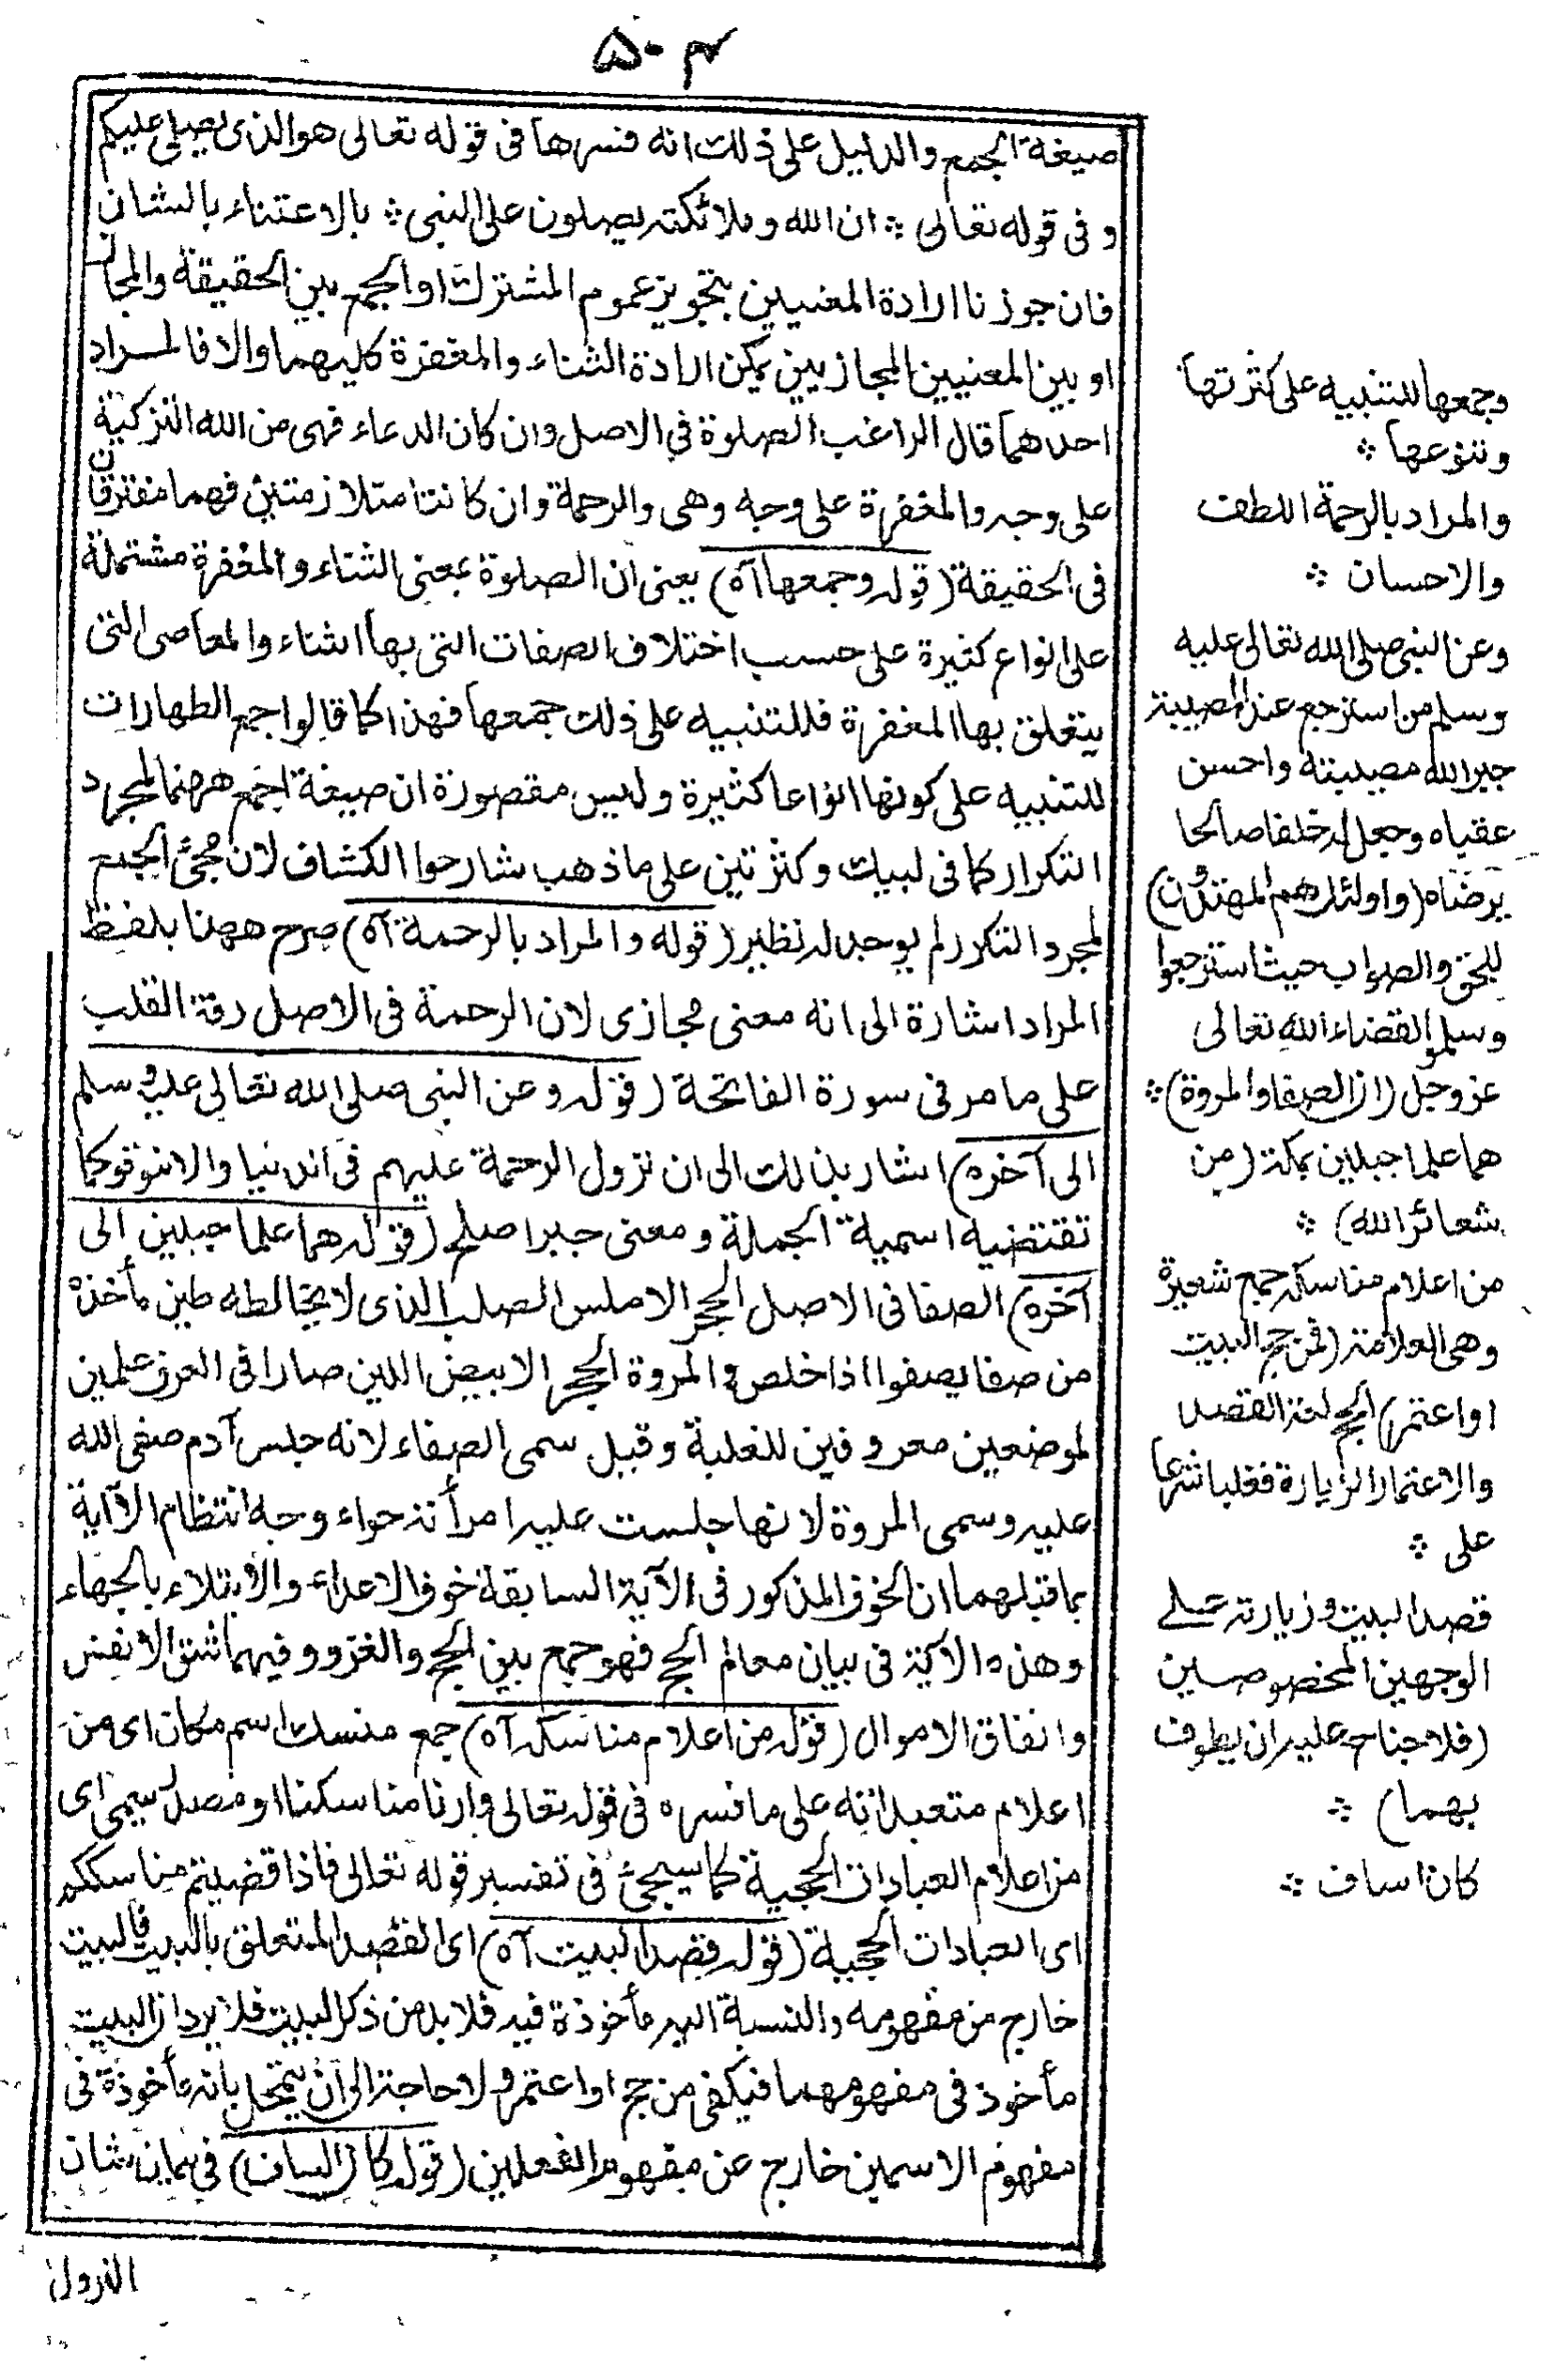 ٥٠٣
صيغة الجمع والدليل على ذلك انه فسرها فى قوله تعالى هو الذى يصلى عليكم
و فى قوله تعالى ؞ ان الله وملائكته يصلون على النبى ؞ بالاعتناء بالشان
فان جوزنا ارادة المعنيين بتجويز عموم المشترك او الجمع بين الحقيقة والمجاز
او بين المعنيين المجازيين يمكن ارادة الثناء والمغفرة كليهما والا فالمراد
احدهما قال الراغب الصلوة فى الاصل وان كان الدعاء فهى من الله التزكية
على وجه والمغفرة على وجه وهى والرحمة وان كانتا متلازمتين فهما مفترقان
فى الحقيقة (قوله وجمعها آه) يعنى ان الصلوة بمعنى الثناء والمغفرة مشتملة
على انواع كثيرة على حسب اختلاف الصفات التى بها الثناء والمعاصى التى
يتعلق بها المغفرة فللتنبيه على ذلك جمعها فهذا كما قالوا جمع الطهارات
للتنبيه على كونها انواعا كثيرة وليس مقصوده ان صيغة الجمع ههنا لمجرد
التكرار كما فى لبيك وكرتين على ما ذهب شارحوا الكشاف لان مجئ الجمع
لمجرد التكرر لم يوجد له نظير (قوله والمراد بالرحمة آه) صرح ههنا بلفظ
المراد اشارة الى انه معنى مجازى لان الرحمة فى الاصل رقة القلب
على ما مر فى سورة الفاتحة (قوله وعن النبى صلى الله تعالى عليه وسلم
الى آخره) اشار بذلك الى ان نزول الرحمة عليهم فى الدنيا والاخرة كما
تقتضيه اسمية الجملة ومعنى جبر اصلح (قوله هما علما جبلين الى
آخره) الصفا فى الاصل الحجر الاملس الصلب الذى لا يخالطه طين مأخذه
من صفا يصفوا اذا خلص والمروة الحجر الابيض اللين صارا فى العرف علمين
لموضعين معروفين للغلبة وقيل سمى الصفاء لانه جلس آدم صفى الله
عليه وسمى المروة لانها جلست عليه امرأته حواء وجه انتظام الآية
بما قبلهما ان الخوف المذكور فى الآية السابقة خوف الاعداء والابتلاء بالجهاد
وهذه الآية فى بيان معالم الحج فهو جمع بين الحج والغزو وفيهما شق الانفس
وانفاق الاموال (قوله من اعلام مناسكه آه) جمع منسك اسم مكان اى من
اعلام متعبداته على ما فسره فى قوله تعالى وارنا مناسكنا او مصدر ميمى اى
من اعلام العبادات الحجية كما سيجئ فى تفسير قوله تعالى فاذا قضيتم مناسككم
اى العبادات الحجية (قوله قصد البيت آه) اى القصد المتعلق بالبيت فالبيت
خارج من مفهومه والنسبة اليه مأخوذة فيه فلا بد من ذكر البيت فلا يرد ان البيت
مأخوذ فى مفهومهما فيكفى من حج او اعتمر ولا حاجة الى ان يتمحل بانه مأخوذة فى
مفهوم الاسمين خارج عن مفهوم الفعلين (قوله كان اساف) فى بيان شان
النزول
وجمعها للتنبيه على كثرتها
وتنوعها ؞
والمراد بالرحمة اللطف
والاحسان ؞
وعن النبى صلى الله تعالى عليه
وسلم من استرجع عند المصيبة
جبر الله مصيبته واحسن
عقباه وجعل له خلفا صالحا
يرضاه (واولئك هم المهتدون)
للحق والصواب حيث استرجعوا
وسلموا لقضاء الله تعالى
عز وجل (ان الصفا والمروة) ؞
هما علما جبلين بمكة (من
شعائر الله) ؞
من اعلام مناسكه جمع شعيرة
وهى العلامة (فمن حج البيت
او اعتمر) الحج لغة القصد
والاعتمار الزيارة فغلبا شرعا
على ؞
قصد البيت وزيارته على
الوجهين المخصوصين
(فلا جناح عليه ان يطوف
بهما) ؞
كان اساف ؞